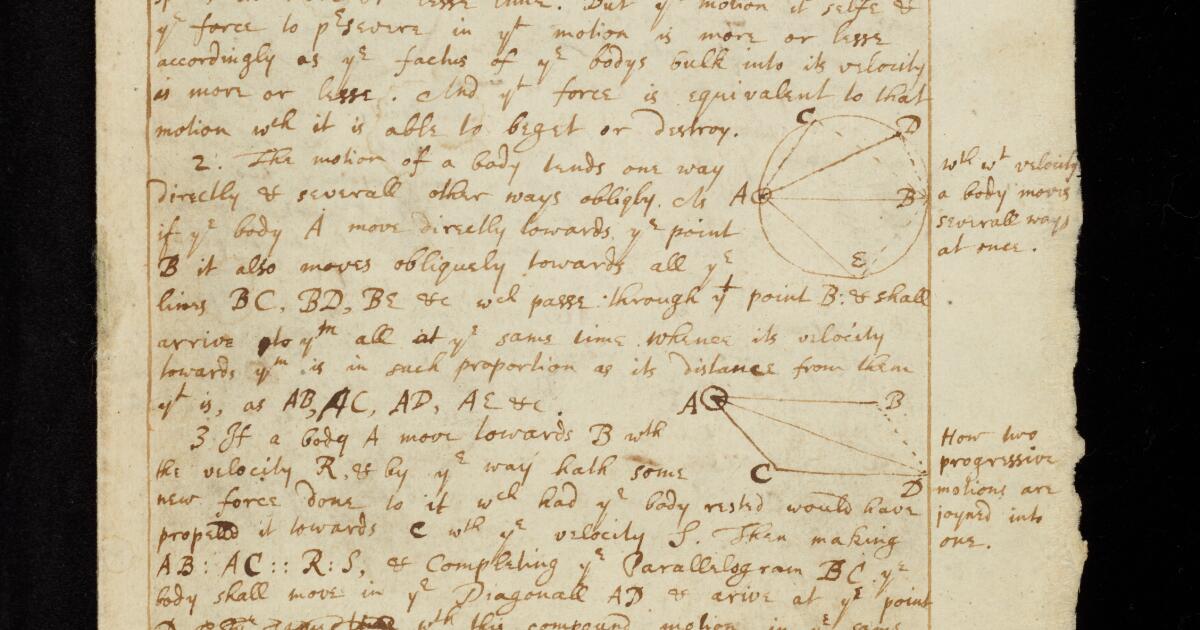 lesse time. But yᵉ motion it selfe &
yᵉ force to pᵉsevere in yᵗ motion is more or lesse
accordingly as yᵉ factus of yᵉ bodys bulk into its velocity
is more or lesse. And yᵗ force is equivalent to that
motion wᶜʰ it is able to beget or destroy.
2. The motion of a body tends one way
directly & severall other ways obliqly. As
if yᵉ body A move directly towards yᵉ point
B it also moves obliquely towards all yᵉ
lines BC, BD, BE &c wᶜʰ passe through yᵗ point B: & shall
arrive to yᵐ all at yᵉ same time whence its velocity
towards yᵐ is in such proportion as its distance from them
yᵗ is, as AB, AC, AD, AE &c.
3 If a body A move towards B wᵗʰ
the velocity R, & by yᵉ way hath some
new force done to it wᶜʰ had yᵉ body rested would have
propelld it towards C wᵗʰ yᵉ velocity S. Then making
AB : AC :: R : S, & Completing yᵉ Parallelogram BC yᵉ
body shall move in yᵉ Diagonall AD & arive at yᵉ point
wᵗʰ this compound motion in yᵉ same
C
D
A
B
E
wᵗʰ wᵗ velocity
a body moves
severall ways
at once.
A
B
C
D
How two
progressive
motions are
joyned into
one.